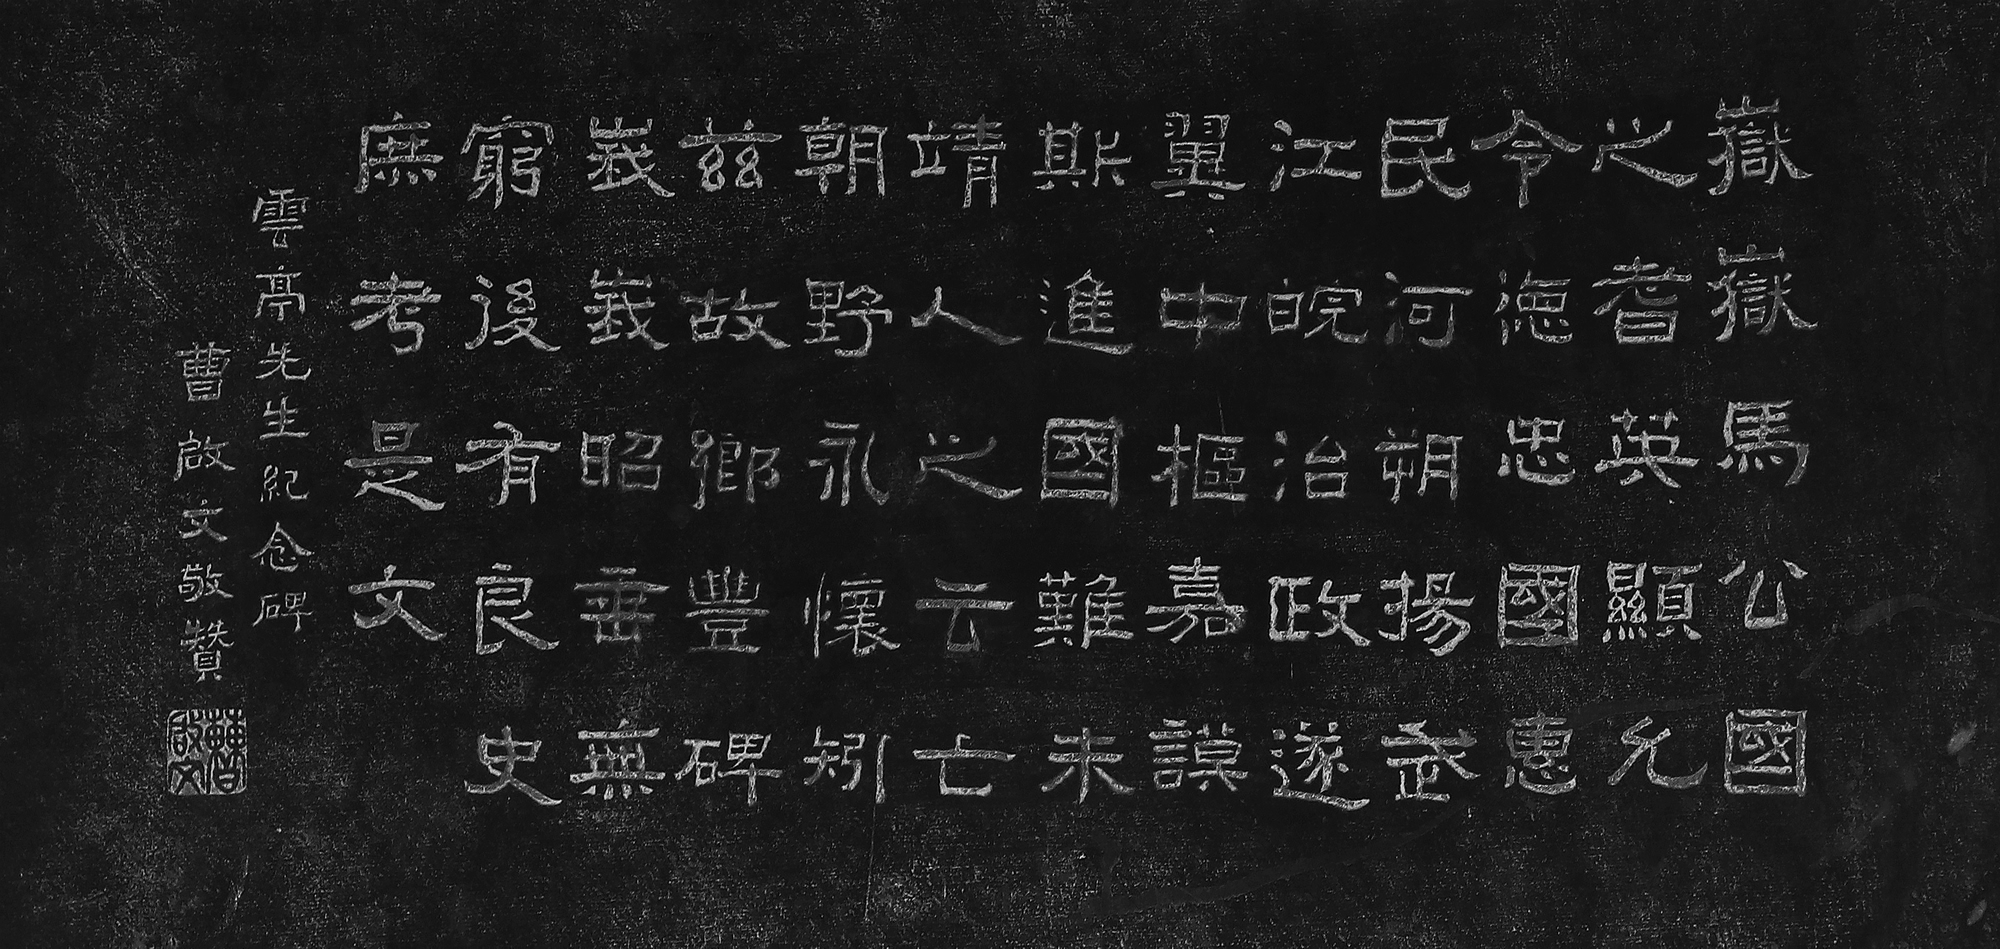 嶽嶽馬公國
之耆英顯允
令德忠國惠
民河朔揚武
江皖治政遂
翼中樞嘉謨
斯進國難未
靖人之云亡
朝野永懷矧
茲故鄉豐碑
峩峩昭垂無
窮後有良史
庶考是文
雲亭先生紀念碑
曹啟文敬贊
曹啟文